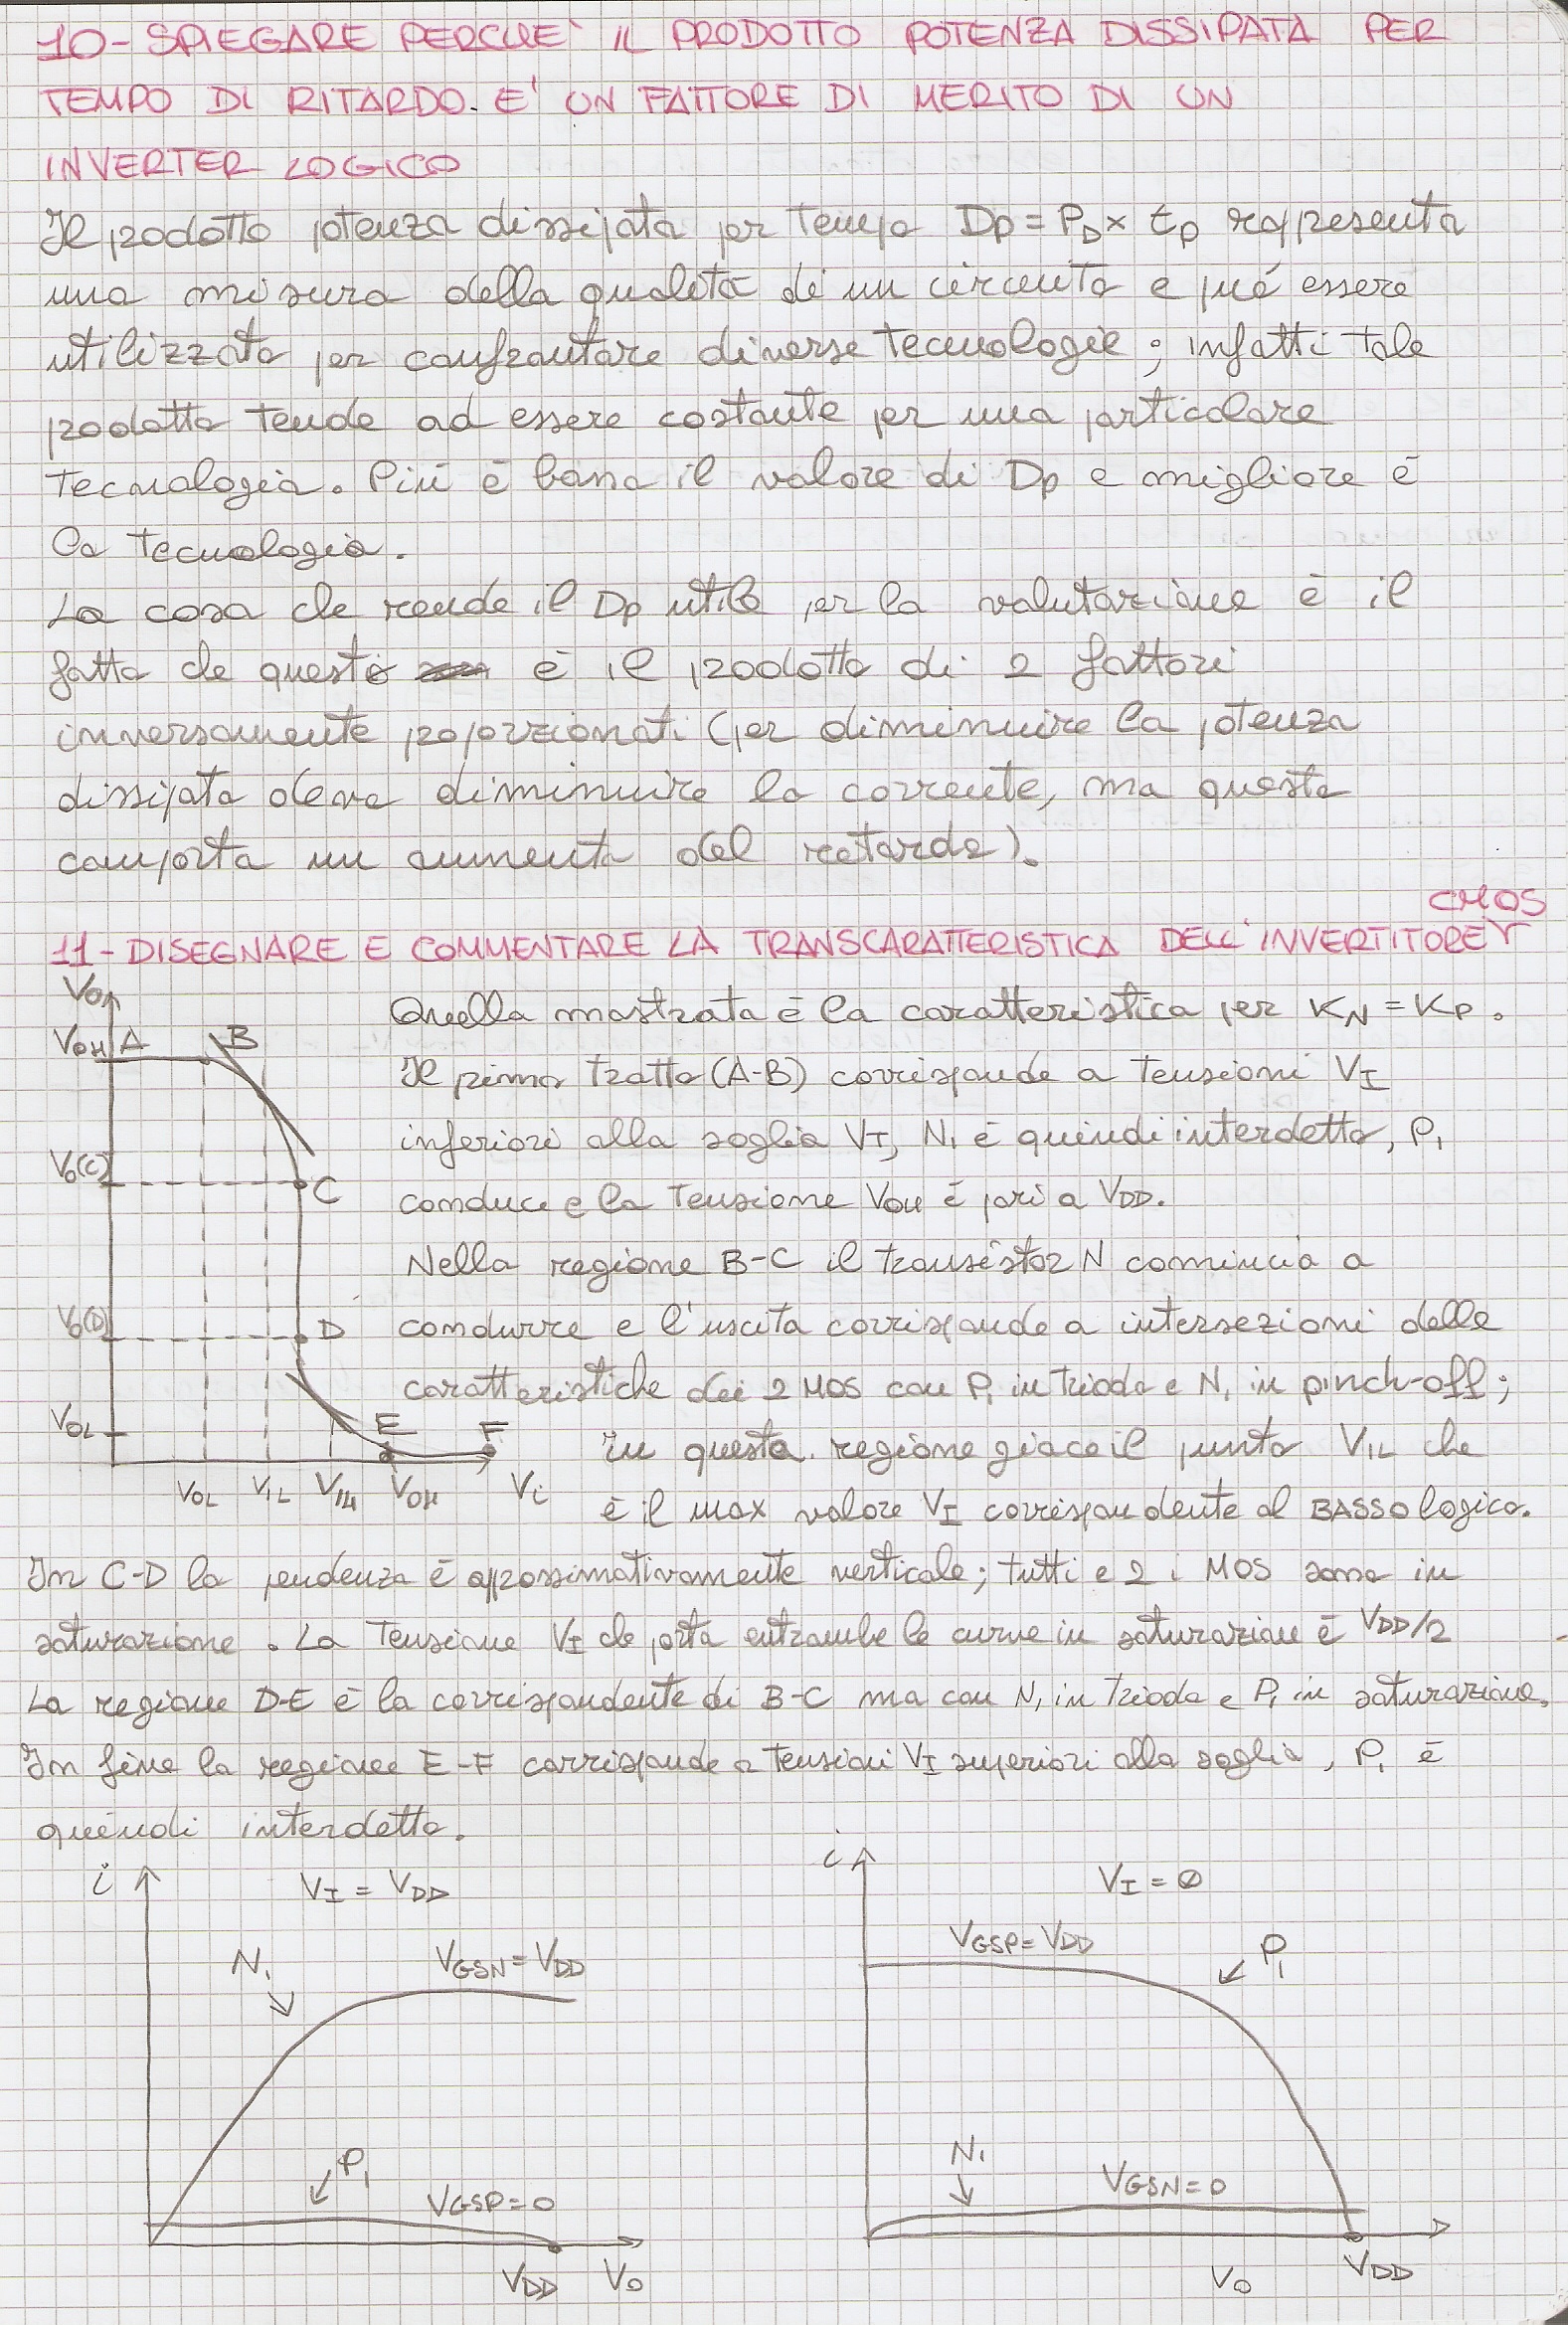 10- SPIEGARE PERCHE' IL PRODOTTO POTENZA DISSIPATA PER
TEMPO DI RITARDO E' UN FATTORE DI MERITO DI UN
INVERTER LOGICO
Il prodotto potenza dissipata per tempo Dp = PD x tp rappresenta
una misura della qualità di un circuito e può essere
utilizzato per confrontare diverse tecnologie; infatti tale
prodotto tende ad essere costante per una particolare
tecnologia. Più è basso il valore di Dp e migliore è
la tecnologia.
La cosa che rende il Dp utile per la valutazione è il
fatto che questo è il prodotto di 2 fattori
inversamente proporzionati (per diminuire la potenza
dissipata deve diminuire la corrente, ma questo
comporta un aumento del ritardo).
11- DISEGNARE E COMMENTARE LA TRANSCARATTERISTICA DELL'INVERTITORE CMOS
Vo
VOH A B
Quella mostrata è la caratteristica per KN = KP.
Il primo tratto (A-B) corrisponde a tensioni VI
inferiori alla soglia VT, N1 è quindi interdetto, P1
Vo(C) C
conduce e la tensione VOH è pari a VDD.
Nella regione B-C il transistor N comincia a
Vo(D) D
condurre e l'uscita corrisponde a intersezioni delle
caratteristiche dei 2 MOS con P1 in triodo e N1 in pinch-off;
VOL E F
in questa regione giace il punto VIL che
VOL VIL VIH VOH Vi
è il max valore VI corrispondente al BASSO logico.
In C-D la pendenza è approssimativamente verticale; tutti e 2 i MOS sono in
saturazione. La tensione VI che porta entrambe le curve in saturazione è VDD/2
La regione D-E è la corrispondente di B-C ma con N1 in triodo e P1 in saturazione.
In fine la regione E-F corrisponde a tensioni VI superiori alla soglia, P1 è
quindi interdetto.
i VI = VDD
N1 VGSN = VDD
P1 VGSP = 0
VDD Vo
i VI = 0
VGSP = VDD P1
N1 VGSN = 0
Vo VDD